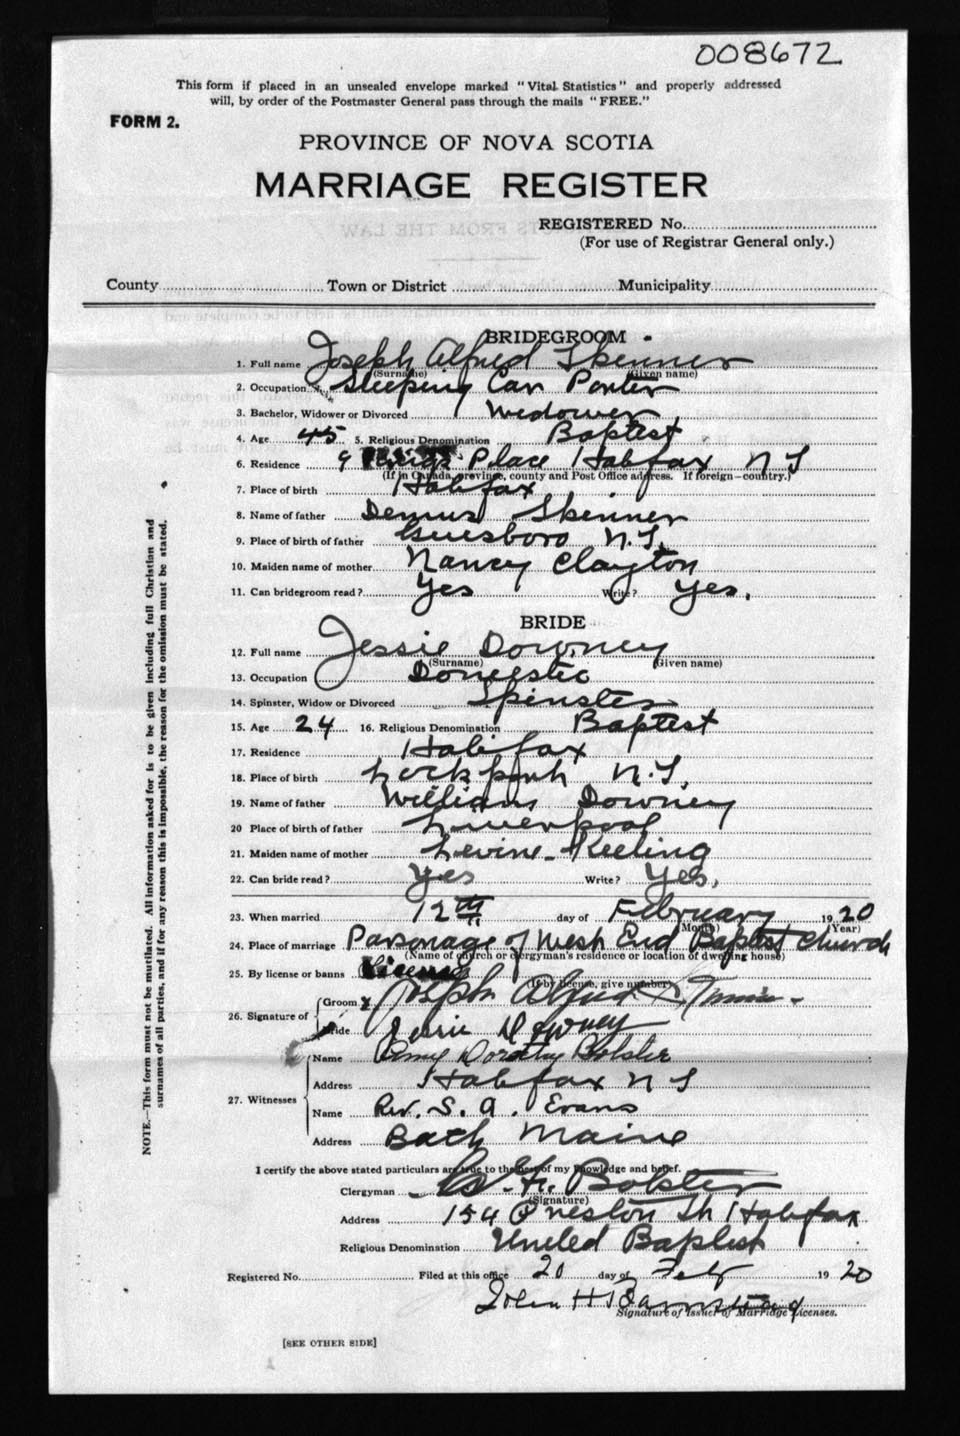 008672
This form if placed in an unsealed envelope marked "Vital Statistics" and properly addressed
will, by order of the Postmaster General pass through the mails "FREE."
FORM 2.
PROVINCE OF NOVA SCOTIA
MARRIAGE REGISTER
REGISTERED No.
(For use of Registrar General only.)
County Town or District Municipality
BRIDEGROOM
1. Full name Joseph Alfred Skinner
(Surname) (Given name)
2. Occupation Sleeping Car Porter
3. Bachelor, Widower or Divorced Widower
4. Age 45 5. Religious Denomination Baptist
6. Residence 9 Place Halifax N S
(If in Canada, province, county and Post Office address. If foreign—country.)
7. Place of birth Halifax
8. Name of father Skinner
9. Place of birth of father Guesboro N.S.
10. Maiden name of mother Nancy Clayton
11. Can bridegroom read? Yes Write? Yes.
BRIDE
12. Full name Jessie Downey
(Surname) (Given name)
13. Occupation Domestic
14. Spinster, Widow or Divorced Spinster
15. Age 24 16. Religious Denomination Baptist
17. Residence Halifax
18. Place of birth Lockport N.S.
19. Name of father William Downey
20 Place of birth of father Liverpool
21. Maiden name of mother Keeling
22. Can bride read? Yes Write? Yes.
23. When married 12th day of February 1920
(Month) (Year)
24. Place of marriage Parsonage of West End Baptist Church
(Name of church or clergyman's residence or location of dwelling house)
25. By license or banns License
(If by license, give number)
26. Signature of Groom x Joseph Alfred Skinner
Bride Jessie Downey
27. Witnesses Name Dorothy Bolster
Address Halifax N S
Name Rev. S. A. Evans
Address Bath Maine
I certify the above stated particulars are true to the best of my knowledge and belief.
Clergyman Bolster
(Signature)
Address Preston St Halifax
Religious Denomination United Baptist
Registered No. Filed at this office 20 day of Feby 1920
John H Barnstead
Signature of Issuer of Marriage Licenses.
[SEE OTHER SIDE]
NOTE.—This form must not be mutilated. All information asked for is to be given including full Christian and
surnames of all parties, and if for any reason this is impossible, the reason for the omission must be stated.